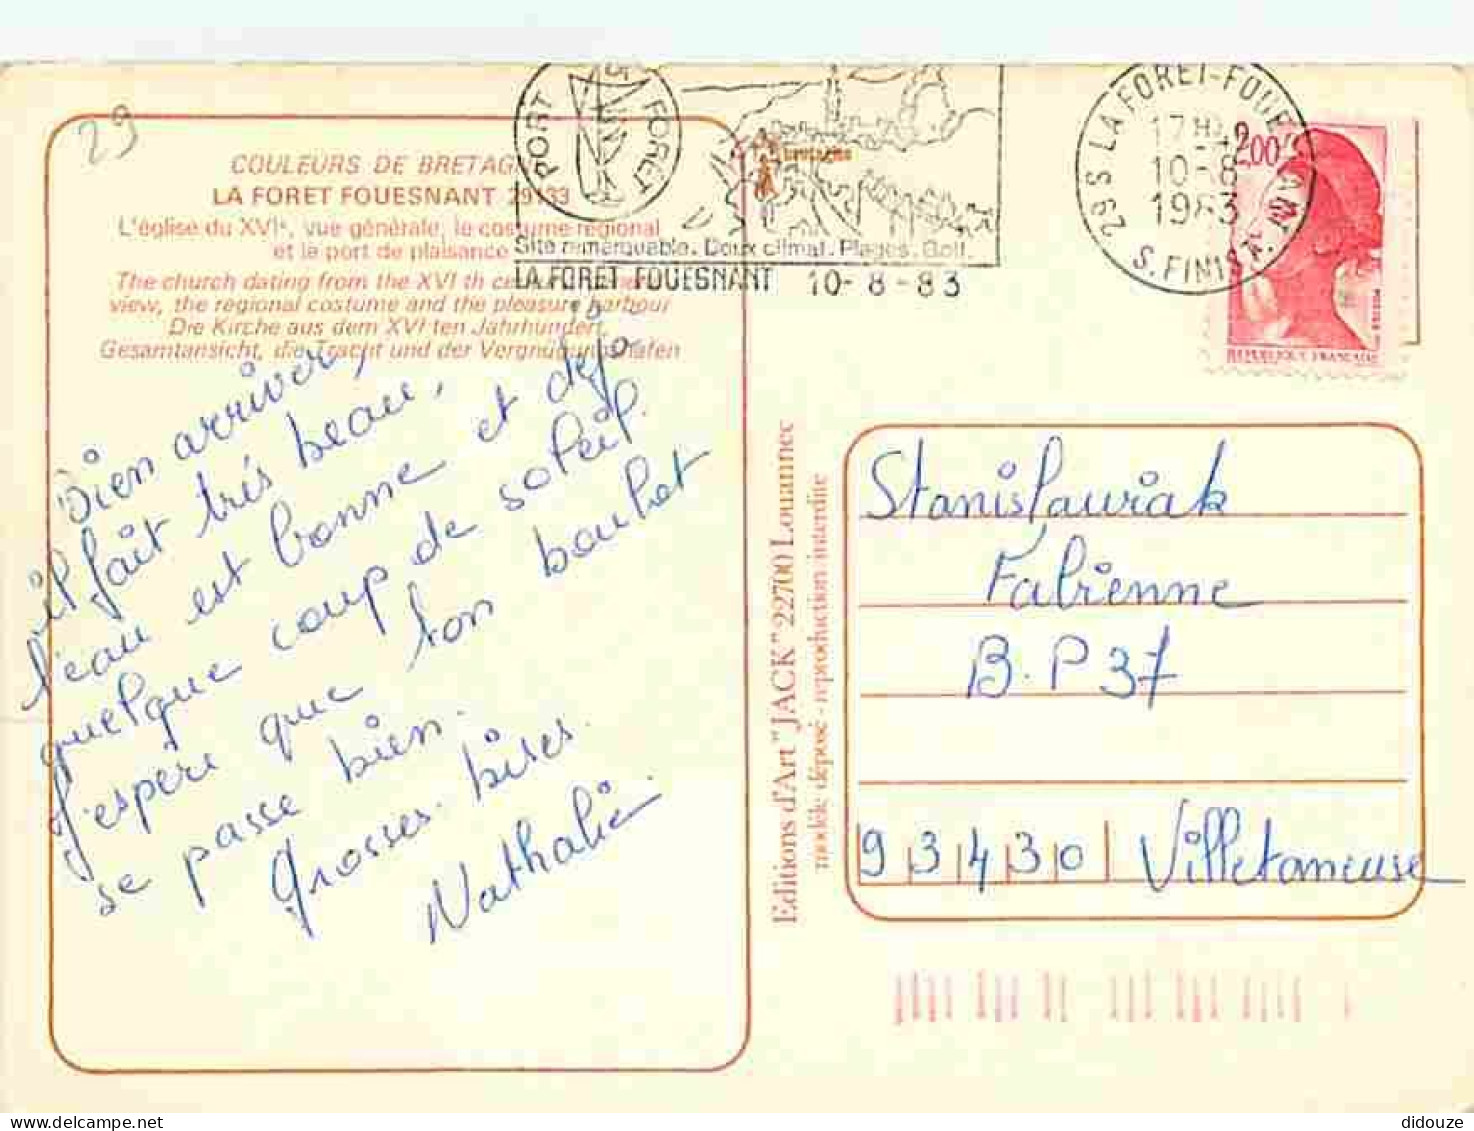 29
COULEURS DE BRETAGNE
LA FORET FOUESNANT 29133
L'église du XVIe, vue générale, le costume régional
et le port de plaisance
The church dating from the XVI th
view, the regional costume and the pleasure harbour
Die Kirche aus dem XVI ten Jahrhundert,
Gesamtansicht, die Tracht und der Vergnügungshafen
Bien arriver,
il fait très beau,
l'eau est bonne et déjà
quelque coup de soleil.
J'espère que ton bouhet
se passe bien.
Grosses bises.
Nathalie
PORT
FORET
bretagne
Site remarquable. Doux climat. Plages. Golf.
LA FORET FOUESNANT 10-8-83
29 S LA FORET-FOUESNANT
17H
10-8
1983
S. FINIST.
2,00
REPUBLIQUE FRANCAISE
Editions d'Art "JACK" 22700 Louannec
modèle déposé - reproduction interdite
Stanislawiak
Fabienne
B.P 37
93430 Villetaneuse
didouze